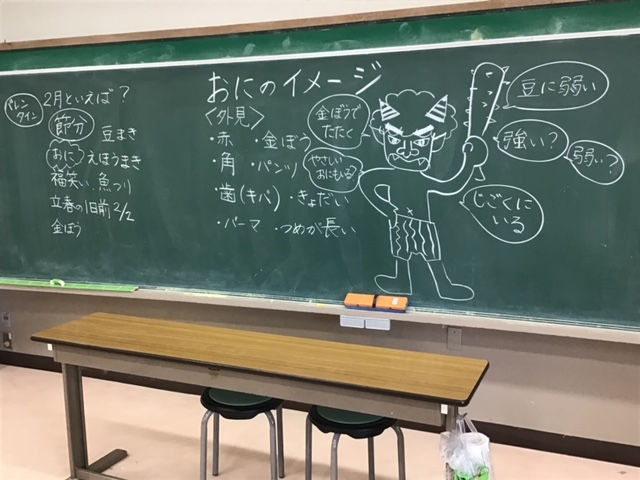 2月といえば？
バレンタイン
節分 豆まき
おに えほうまき
福笑い、魚つり
立春の1日前 2/2
金ぼう
おにのイメージ
〈外見〉
・赤 ・金ぼう
・角 ・パンツ
・歯(キバ) ・きょだい
・パーマ ・つめが長い
金ぼうで
たたく
やさしい
おにもいる？
豆に弱い
強い？
弱い？
じごくに
いる